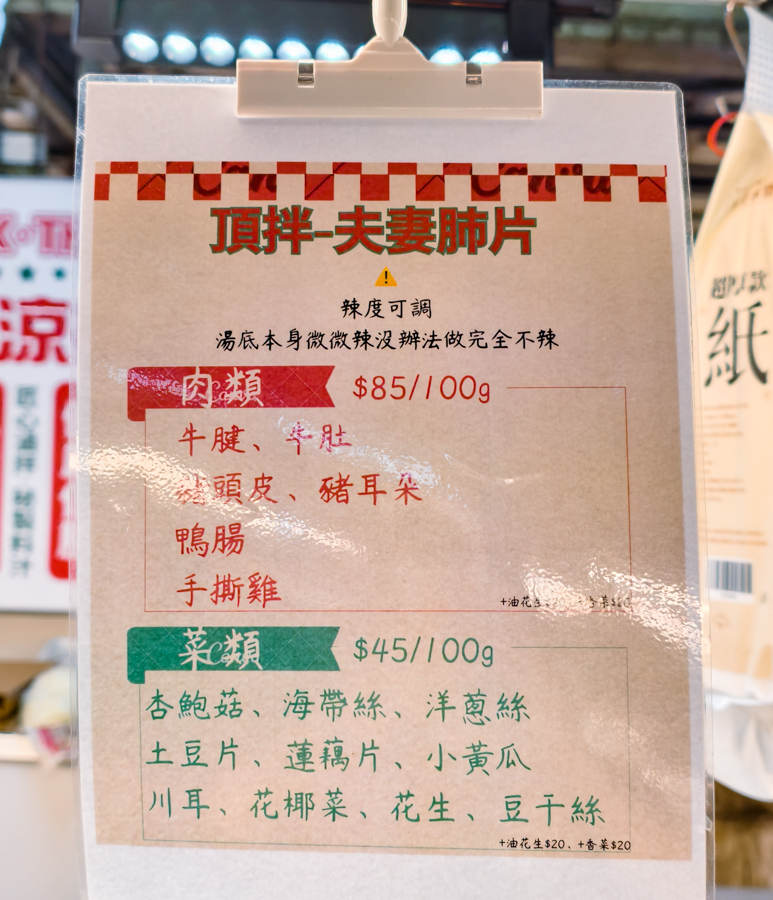 頂拌-夫妻肺片
辣度可調
湯底本身微微辣沒辦法做完全不辣
肉類 $85/100g
牛腱、牛肚
豬頭皮、豬耳朵
鴨腸
手撕雞
+油花生$20、+香菜$20
菜類 $45/100g
杏鮑菇、海帶絲、洋蔥絲
土豆片、蓮藕片、小黃瓜
川耳、花椰菜、花生、豆干絲
+油花生$20、+香菜$20
涼
超厚款
紙